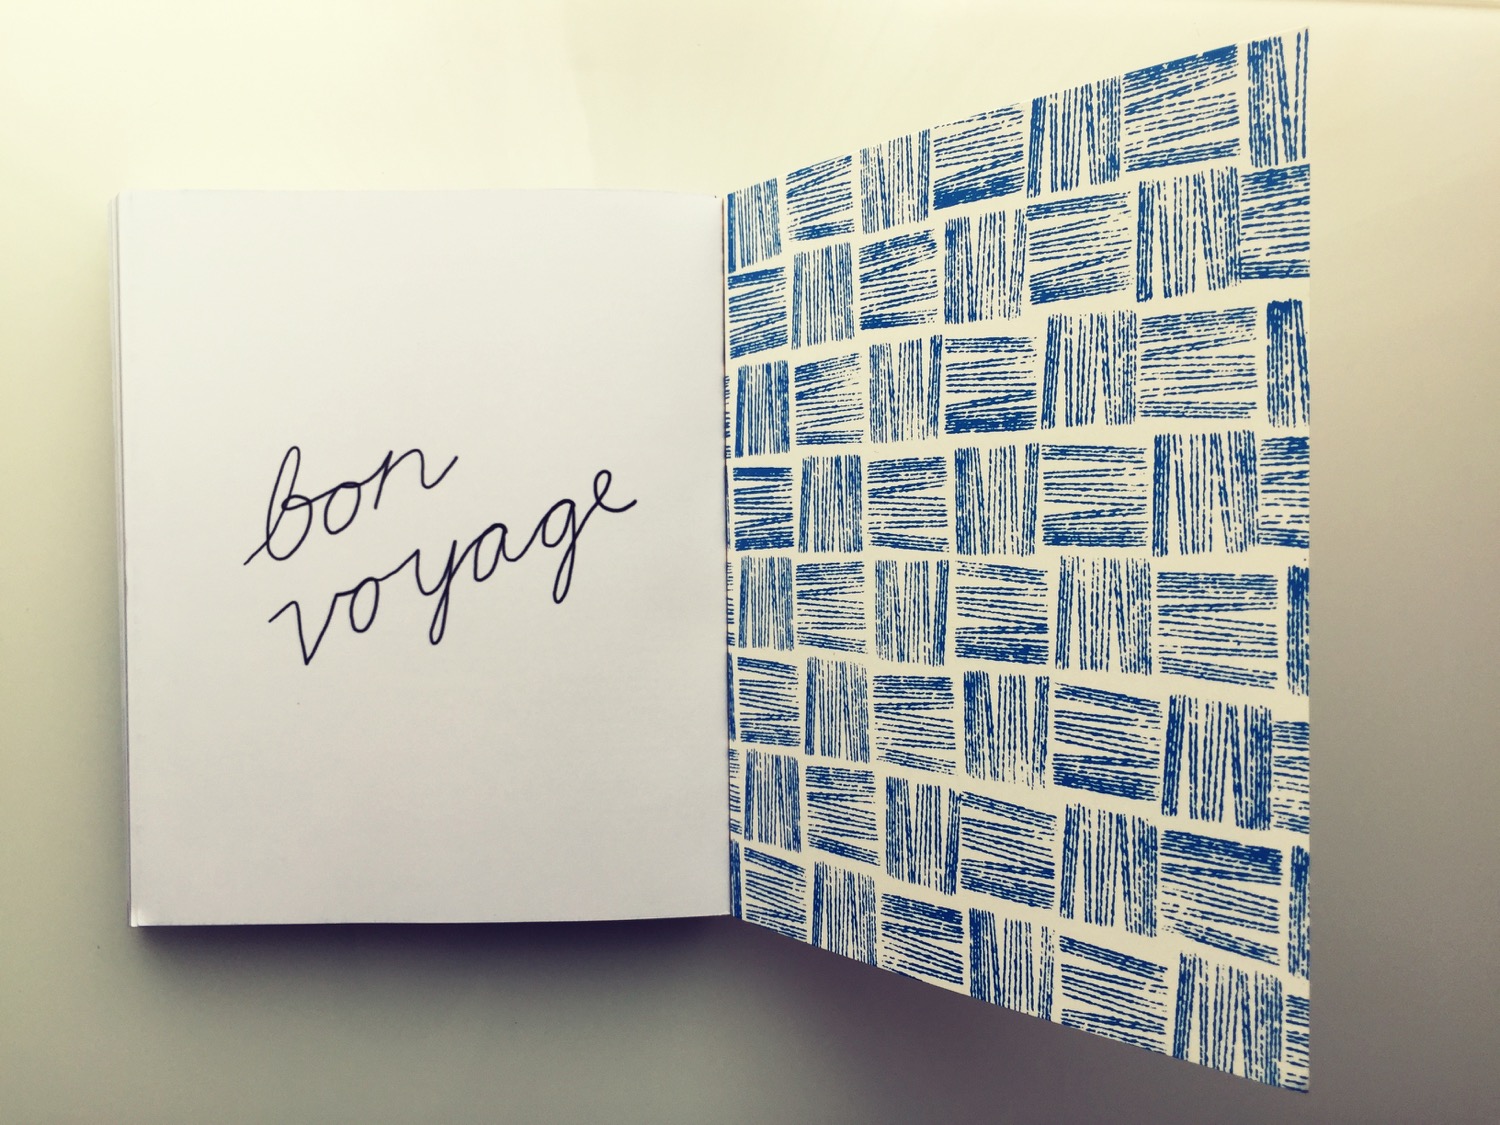 bon
voyage